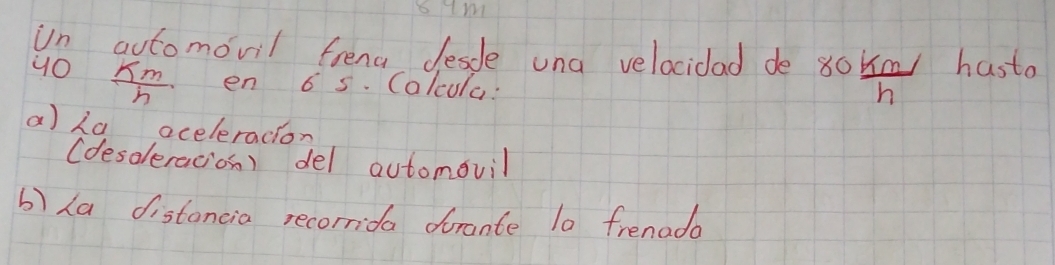 64m
Un automóvil frena desde una velocidad de 80 Km/h hasta
40 Km/h en 6 s. Calcula:
a) La aceleración
(desaleración) del automóvil
b) La distancia recorrida durante la frenada